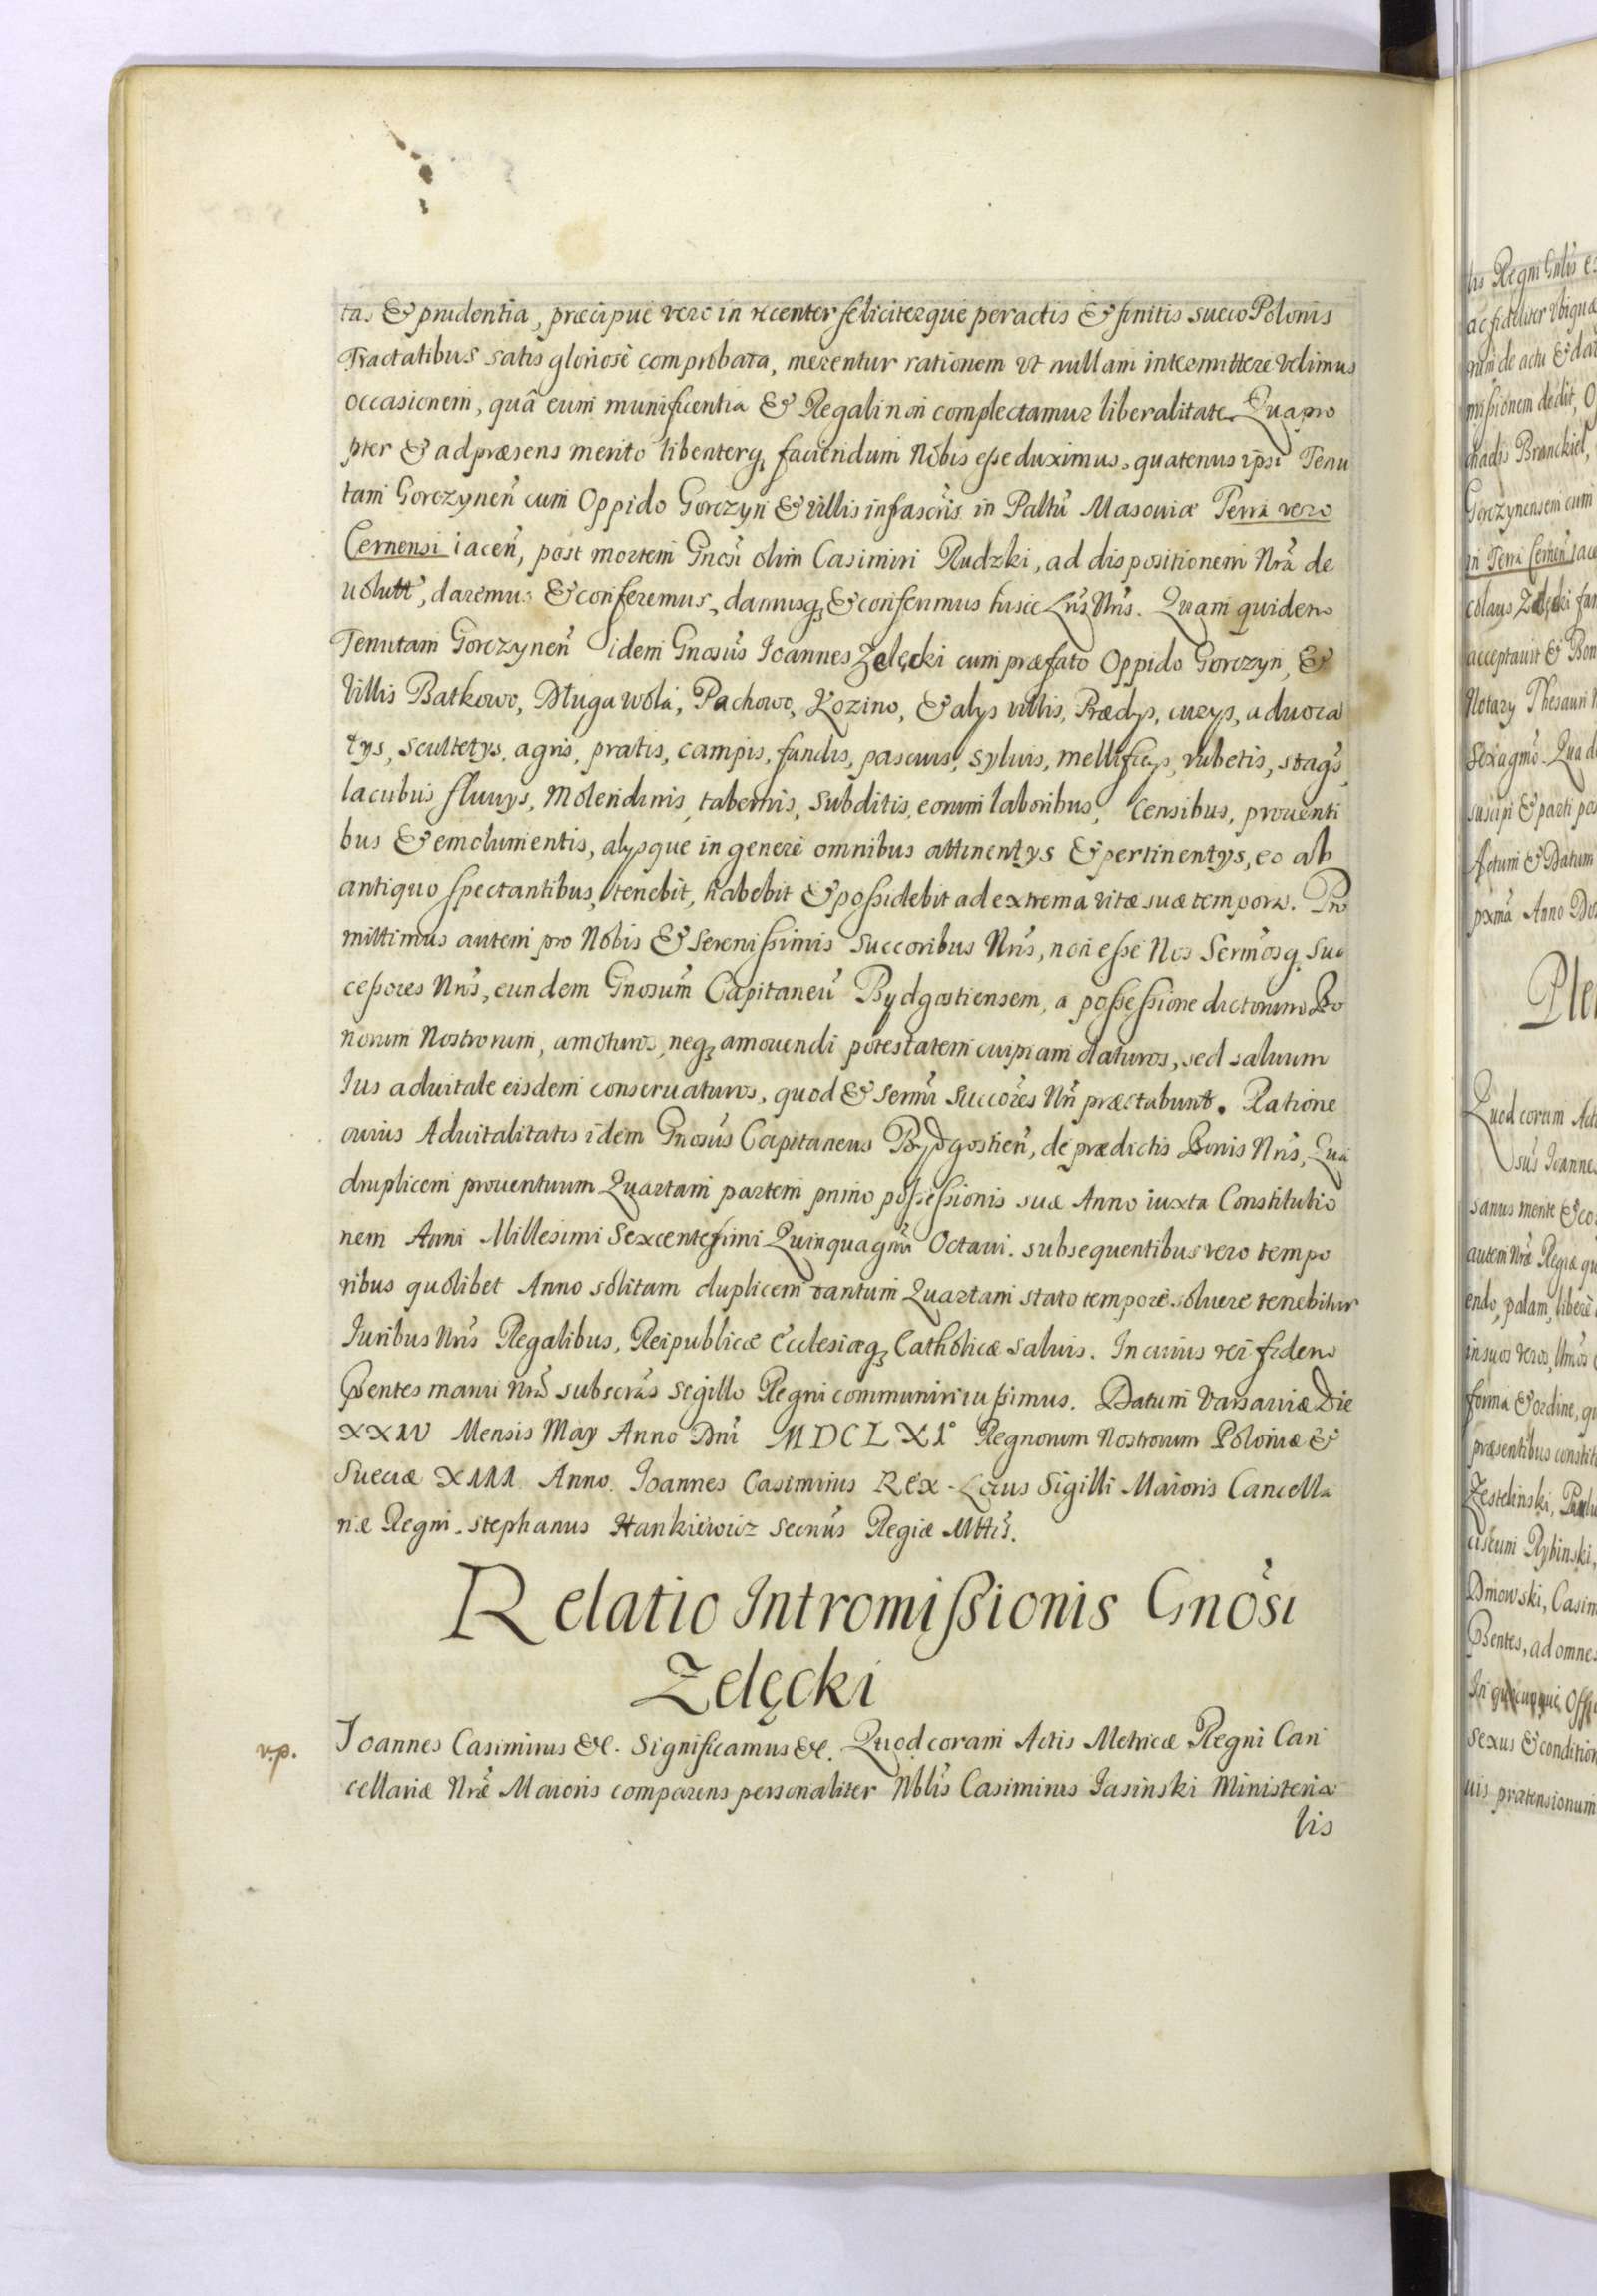 tas & prudentia, præcipue vero in recenter feliciterque peractis & finitis sueco Polonis
Tractatibus satis gloriosè comprobata, merentur rationem vt nullam intermittere velimus
occasionem, quâ eum munificentia & Regali non complectamur liberalitate. Quapro
pter & ad præsens merito libenterq; faciendum Nobis esse duximus, quatenus ipsi Tenu
tam Gorczynen̄ cum Oppido Gorczyn & villis infrascris in Paltū Masouiæ Terra vero
Cernensi iacen̄, post mortem Gnosi olim Casimiri Rudzki, ad dispositionem Nrā de
uolutt, daremus & conferemus, damusq; & conferimus hisce Lris Nris. Quam quidem
Tenutam Gorczynen̄ idem Gnosus Ioannes Zelęcki cum præfato Oppido Gorczyn, &
Villis Batkowo, Długa wola, Pachowo, Kozino, & alijs villis, Prædijs, curijs, aduoca
tijs, scultetijs, agris, pratis, campis, fundis, pascuis, syluis, mellificijs, rubetis, stagis,
lacubus fluuijs, Molendinis, tabernis, subditis, eorum laboribus, Censibus, prouenti
bus & emolumentis, alijsque in genere omnibus attinentijs & pertinentijs, eo ab
antiquo spectantibus, tenebit, habebit & possidebit ad extrema vitæ suæ tempora. Pro
mittimus autem pro Nobis & Serenissimis Succoribus Nris, non esse Nos Sermosq; Suc
cessores Nros, eundem Gnosum Capitaneū Bydgostiensem, a possessione dictorum Bo
norum Nostrorum, amoturos, neq; amouendi potestatem cuipiam daturos, sed saluum
Ius aduitale eisdem conseruaturos, quod & Sermi Succores Nri præstabunt. Ratione
cuius Aduitalitatis idem Gnosus Capitaneus Bydgostien̄, de prædictis Bonis Nris, Qua
druplicem prouentuum Quartam partem primo possessionis suæ Anno iuxta Constitutio
nem Anni Millesimi Sexcentesimi Quinquagmi Octaui. subsequentibus vero tempo
ribus quolibet Anno solitam duplicem tantum Quartam stato tempore soluere tenebitur
Iuribus Nris Regalibus, Reipublicæ Ecclesiæq; Catholicæ saluis. In cuius rei fidem
Pntes manu Nrā subscras Sigillo Regni communiri iussimus. Datum Varsauiæ Die
XXIV Mensis May Anno Dni MDCLXI° Regnorum Nostrorum Poloniæ &
Sueciæ XIII. Anno. Ioannes Casimirus Rex. Locus Sigilli Maioris Cancella
riæ Regni. Stephanus Hankiewicz Secrius Regiæ Mttis.
Relatio Intromissionis Gnosi
Zelęcki
v.p. Ioannes Casimirus &c. Significamus &c. Quod coram Actis Metricæ Regni Can
cellariæ Nræ Maioris comparens personaliter Nblis Casimirus Iasinski Ministeria
lis